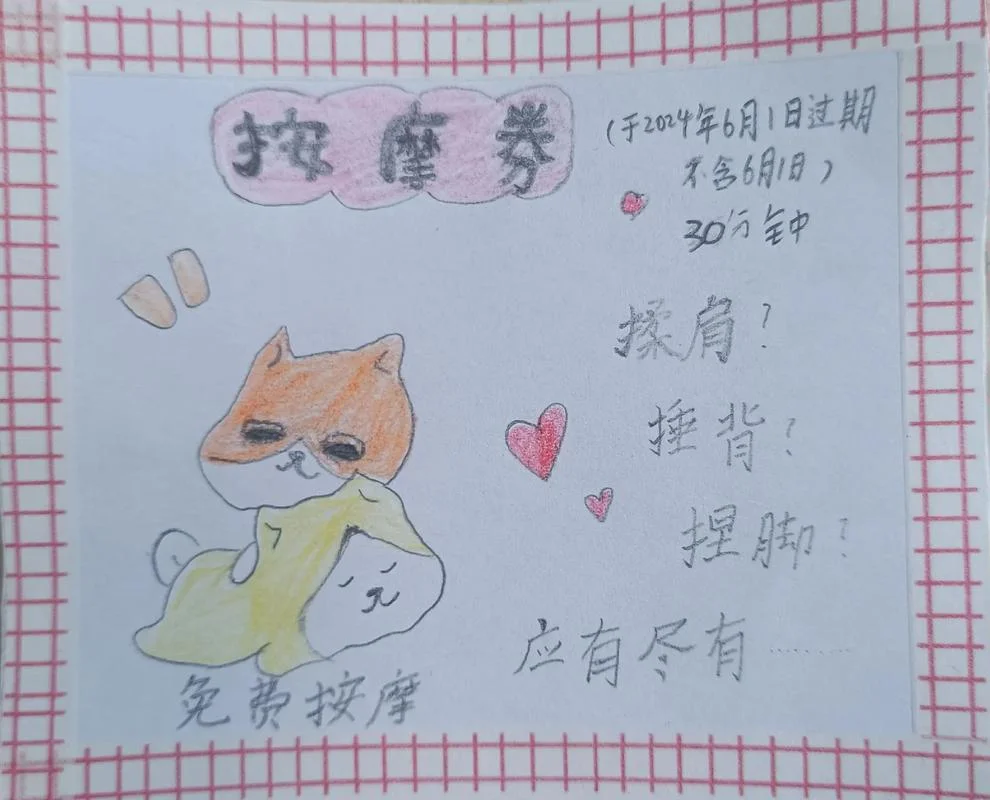 按摩券
(于2024年6月1日过期
不含6月1日)
30分钟
揉肩?
捶背?
捏脚?
应有尽有……
免费按摩